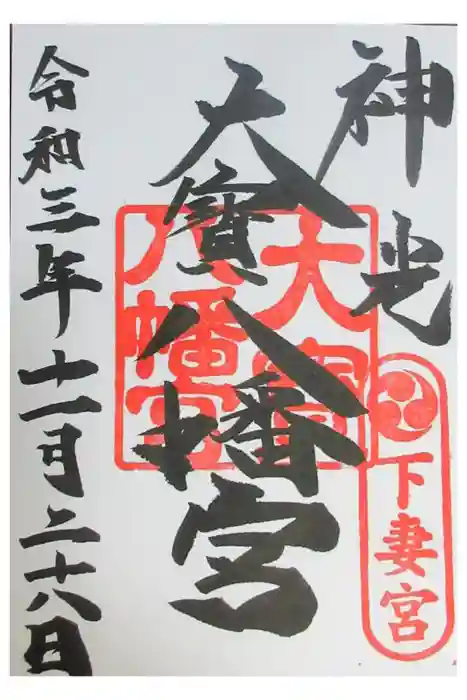 神光
下妻宮
大寳八幡宮
大寳八幡宮
令和三年十一月二十八日